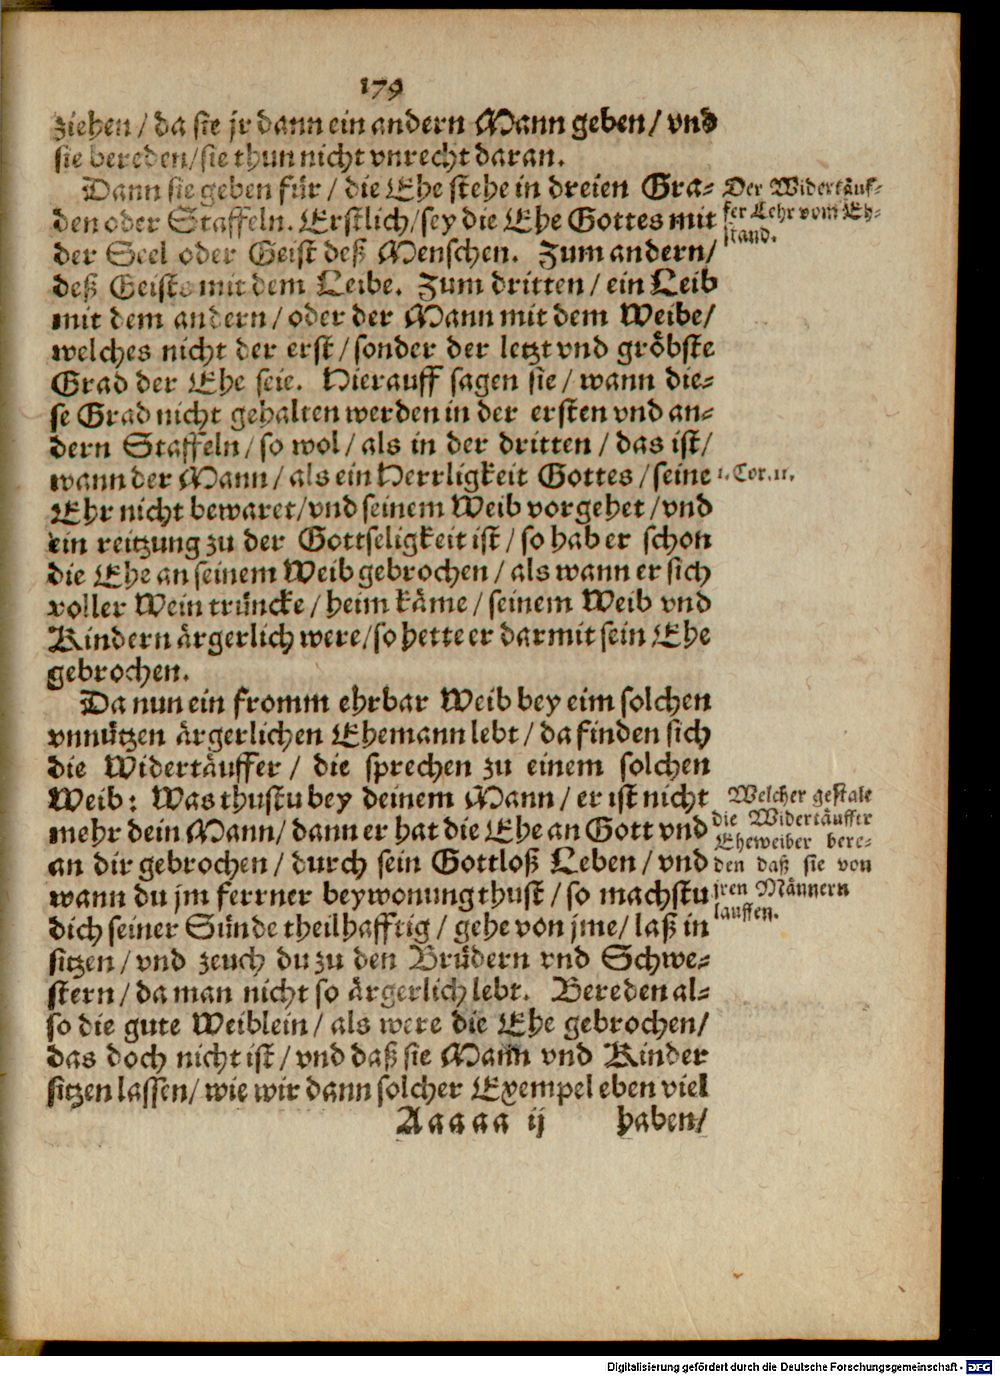 179
ziehen / da sie jr dann ein andern Mann geben / vnd
sie bereden / sie thun nicht vnrecht daran.
Dann sie geben für / die Ehe stehe in dreien Gra-
den oder Staffeln. Erstlich / sey die Ehe Gottes mit
der Seel oder Geist deß Menschen. Zum andern /
deß Geists mit dem Leibe. Zum dritten / ein Leib
mit dem andern / oder der Mann mit dem Weibe /
welches nicht der erst / sonder der letzt vnd gröbste
Grad der Ehe seie. Hierauff sagen sie / wann die-
se Grad nicht gehalten werden in der ersten vnd an-
dern Staffeln / so wol / als in der dritten / das ist /
wann der Mann / als ein Herrligkeit Gottes / seine
Ehr nicht bewaret / vnd seinem Weib vorgehet / vnd
ein reitzung zu der Gottseligkeit ist / so hab er schon
die Ehe an seinem Weib gebrochen / als wann er sich
voller Wein trüncke / heim käme / seinem Weib vnd
Kindern ärgerlich were / so hette er darmit sein Ehe
gebrochen.
Da nun ein fromm ehrbar Weib bey eim solchen
vnnützen ärgerlichen Ehemann lebt / da finden sich
die Widertäuffer / die sprechen zu einem solchen
Weib: Was thustu bey deinem Mann / er ist nicht
mehr dein Mann / dann er hat die Ehe an Gott vnd
an dir gebrochen / durch sein Gottloß Leben / vnd
wann du jm ferrner beywonung thust / so machstu
dich seiner Sünde theilhafftig / gehe von jme / laß in
sitzen / vnd zeuch du zu den Brüdern vnd Schwe-
stern / da man nicht so ärgerlich lebt. Bereden al-
so die gute Weiblein / als were die Ehe gebrochen /
das doch nicht ist / vnd daß sie Mann vnd Kinder
sitzen lassen / wie wir dann solcher Exempel eben viel
Aaaaa ij haben /
Der Widertäuf-
fer Lehr vom Eh-
stand.
1. Cor. 11.
Welcher gestalt
die Widertäuffer
Eheweiber bere-
den daß sie von
jren Männern
lauffen.
Digitalisierung gefördert durch die Deutsche Forschungsgemeinschaft - DFG